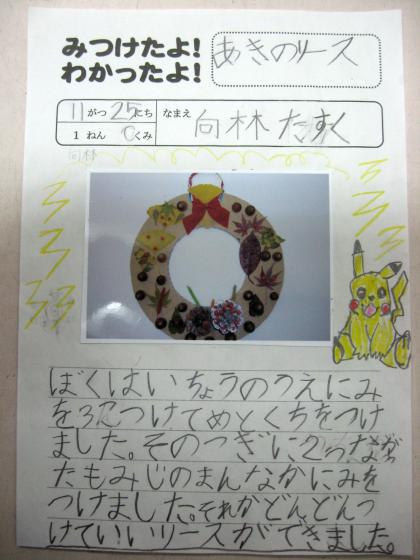 みつけたよ!
わかったよ!
あきのリース
11がつ25にち
1ねんCくみ
なまえ
向林たすく
向林
ぼくはいちょうのうえにみ
を3こつけてめとくちをつけ
ました。そのつぎに2つ
たもみじのまんなかにみを
つけました。それからどんどんつ
けていいリースができました。